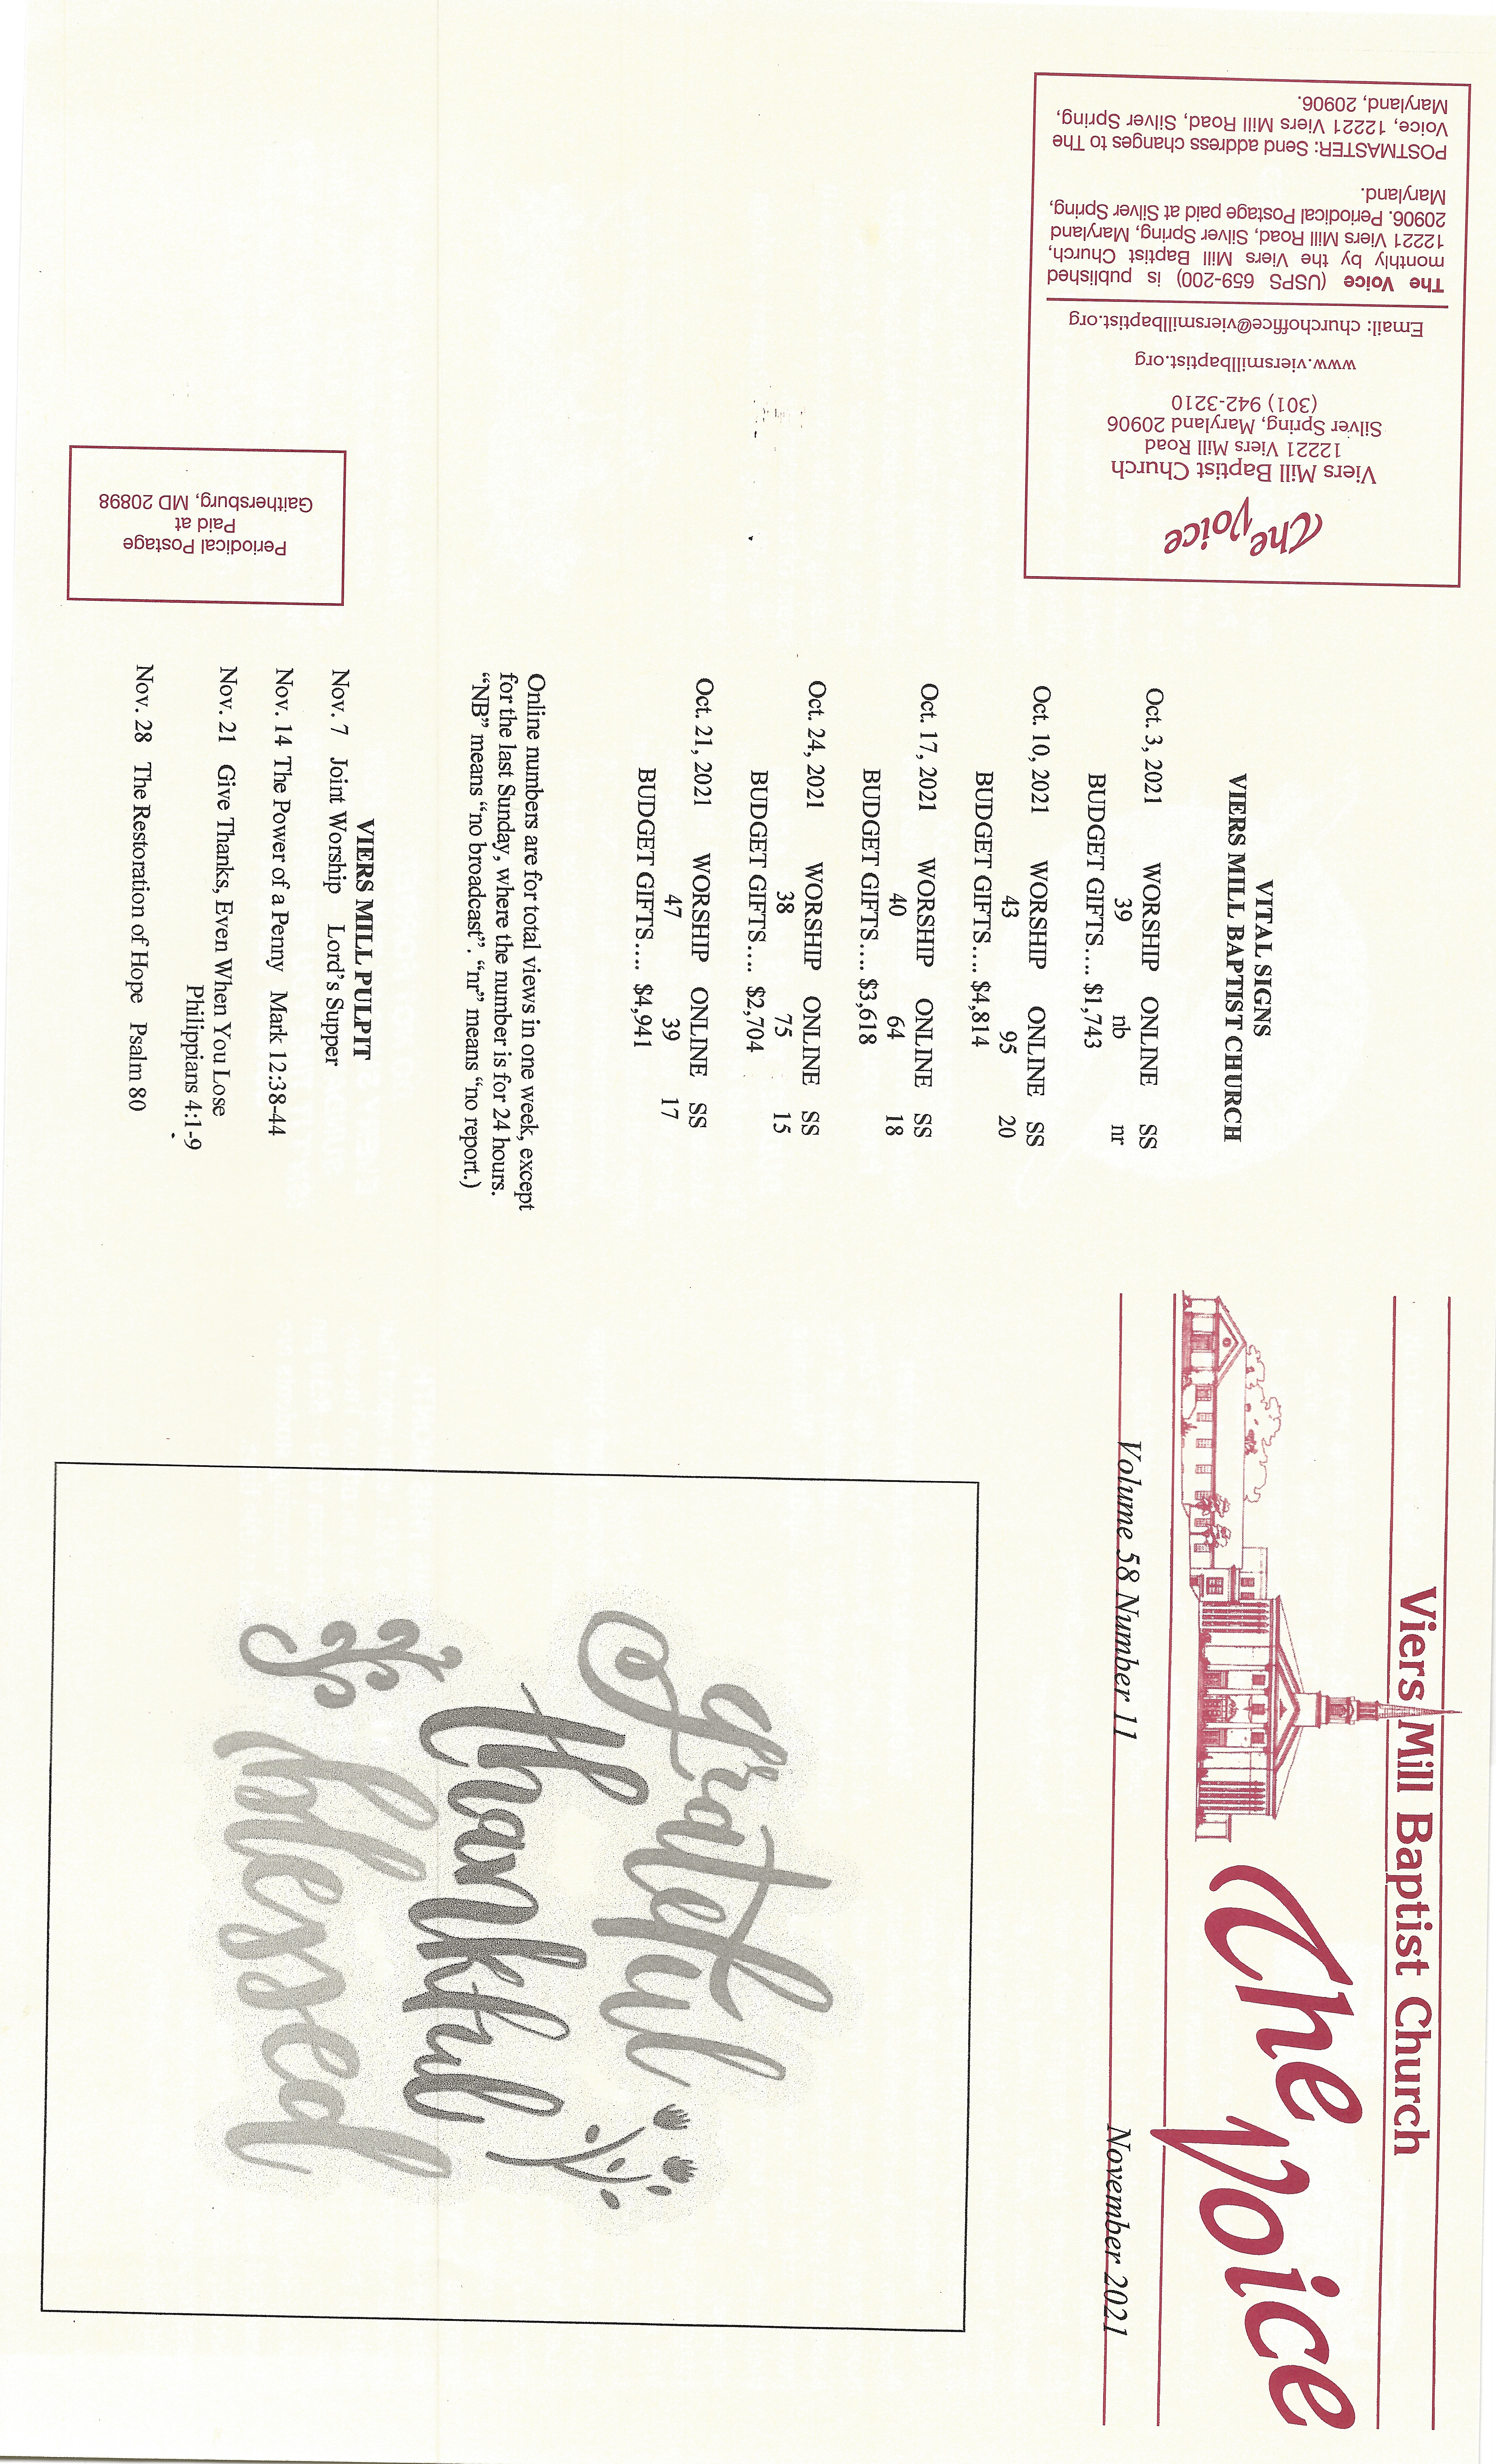 Viers Mill Baptist Church
The Voice
Volume 58 Number 11 November 2021
grateful
thankful
blessed
VITAL SIGNS
VIERS MILL BAPTIST CHURCH
Oct. 3, 2021 WORSHIP ONLINE SS
39 nb nr
BUDGET GIFTS…. $1,743
Oct. 10, 2021 WORSHIP ONLINE SS
43 95 20
BUDGET GIFTS…. $4,814
Oct. 17, 2021 WORSHIP ONLINE SS
40 64 18
BUDGET GIFTS…. $3,618
Oct. 24, 2021 WORSHIP ONLINE SS
38 75 15
BUDGET GIFTS…. $2,704
Oct. 21, 2021 WORSHIP ONLINE SS
47 39 17
BUDGET GIFTS…. $4,941
Online numbers are for total views in one week, except
for the last Sunday, where the number is for 24 hours.
“NB” means “no broadcast”. “nr” means “no report.)
VIERS MILL PULPIT
Nov. 7 Joint Worship Lord’s Supper
Nov. 14 The Power of a Penny Mark 12:38-44
Nov. 21 Give Thanks, Even When You Lose
Philippians 4:1-9
Nov. 28 The Restoration of Hope Psalm 80
The Voice
Viers Mill Baptist Church
12221 Viers Mill Road
Silver Spring, Maryland 20906
(301) 942-3210
www.viersmillbaptist.org
Email: churchoffice@viersmillbaptist.org
The Voice (USPS 659-200) is published
monthly by the Viers Mill Baptist Church,
12221 Viers Mill Road, Silver Spring, Maryland
20906. Periodical Postage paid at Silver Spring,
Maryland.
POSTMASTER: Send address changes to The
Voice, 12221 Viers Mill Road, Silver Spring,
Maryland, 20906.
Periodical Postage
Paid at
Gaithersburg, MD 20898